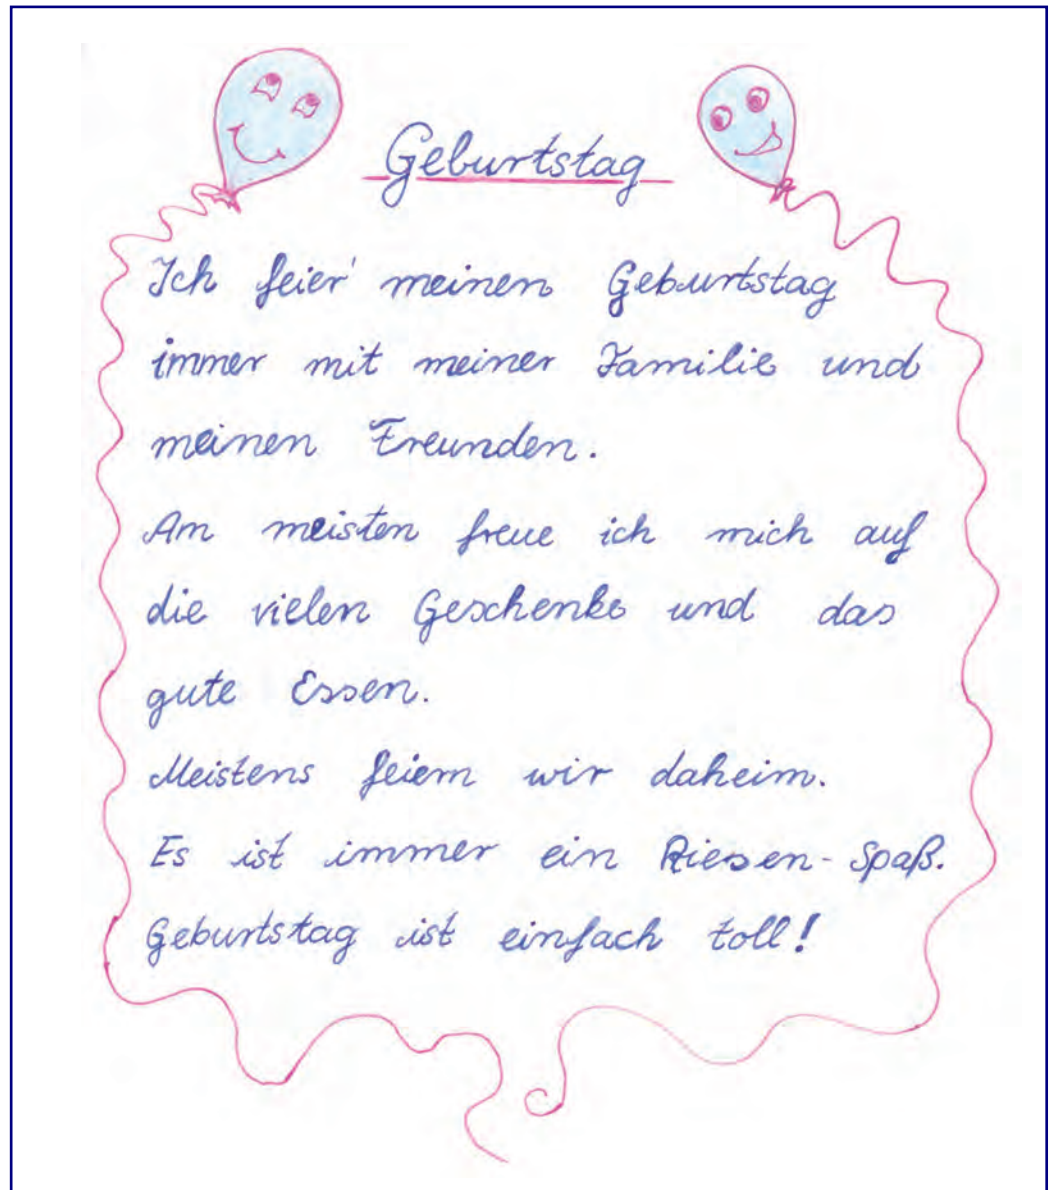 Geburtstag
Ich feier' meinen Geburtstag
immer mit meiner Familie und
meinen Freunden.
Am meisten freue ich mich auf
die vielen Geschenke und das
gute Essen.
Meistens feiern wir daheim.
Es ist immer ein Riesen-Spaß.
Geburtstag ist einfach toll!